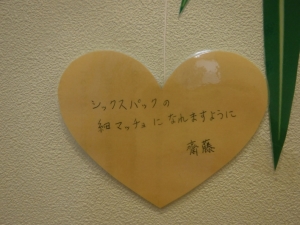 シックスパックの
細マッチョになれますように
斎藤